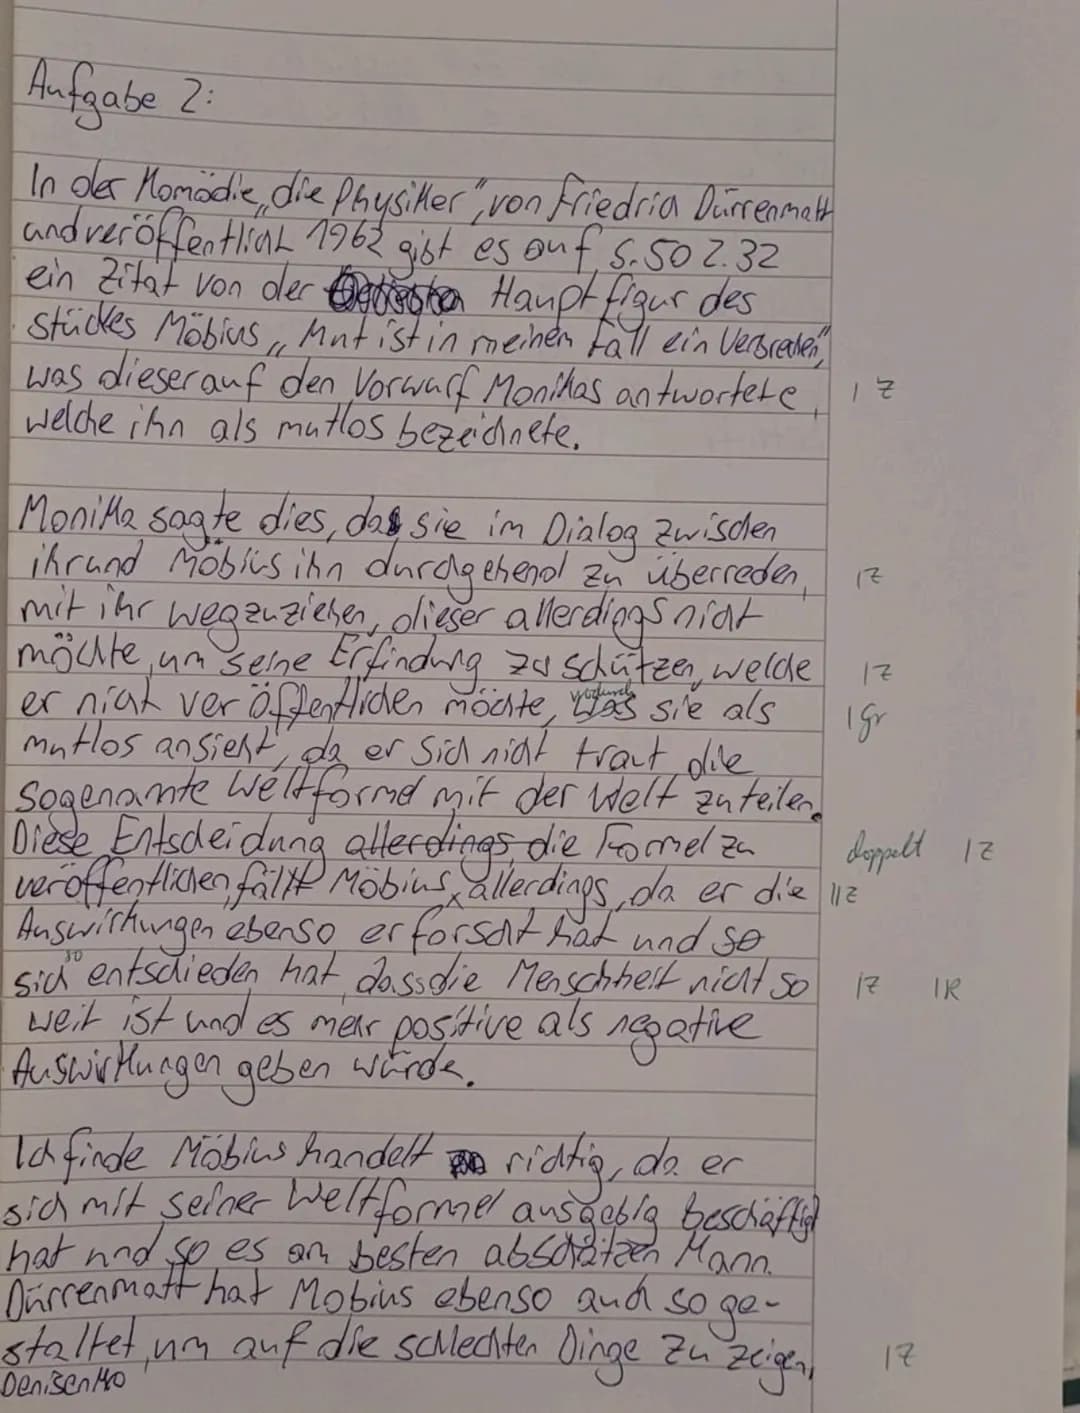 Aufgabe 2:
In der Komödie „die Physiker“, von Friedrich Dürrenmatt
und veröffentlicht 1962 gibt es auf S.50 Z.32
ein Zitat von der Hauptfigur des
stückes Möbius „Mut ist in meinem Fall ein Verbrechen“,
was dieser auf den Vorwurf Monikas antwortete, 1 Z
welche ihn als mutlos bezeichnete.
Monika sagte dies, da sie im Dialog zwischen
ihr und Möbius ihn durchgehend zu überreden, 1Z
mit ihr wegzuziehen, dieser allerdings nicht
möchte, um seine Erfindung zu schützen, welche 1Z
er nicht veröffentlichen möchte, was wodurch sie als 1 Gr
mutlos ansieht, da er sich nicht traut die
sogenante Weltformel mit der Welt zu teilen.
Diese Entscheidung allerdings, die Formel zu doppelt 1Z
veröffentlichen, fällt Möbius, allerdings, da er die 11Z
Auswirkungen ebenso erforscht hat und so
sich so entschieden hat, dass die Menschheit nicht so 1Z 1R
weit ist und es mehr positive als negative
Auswirkungen geben würde.
Ich finde Möbius handelt richtig, da er
sich mit seiner Weltformel ausgebig beschäftigt
hat und so es am besten abschätzen kann.
Dürrenmatt hat Mobius ebenso auch so ge-
staltet, um auf die schlechten Dinge zu zeigen, 1Z
Denisen140